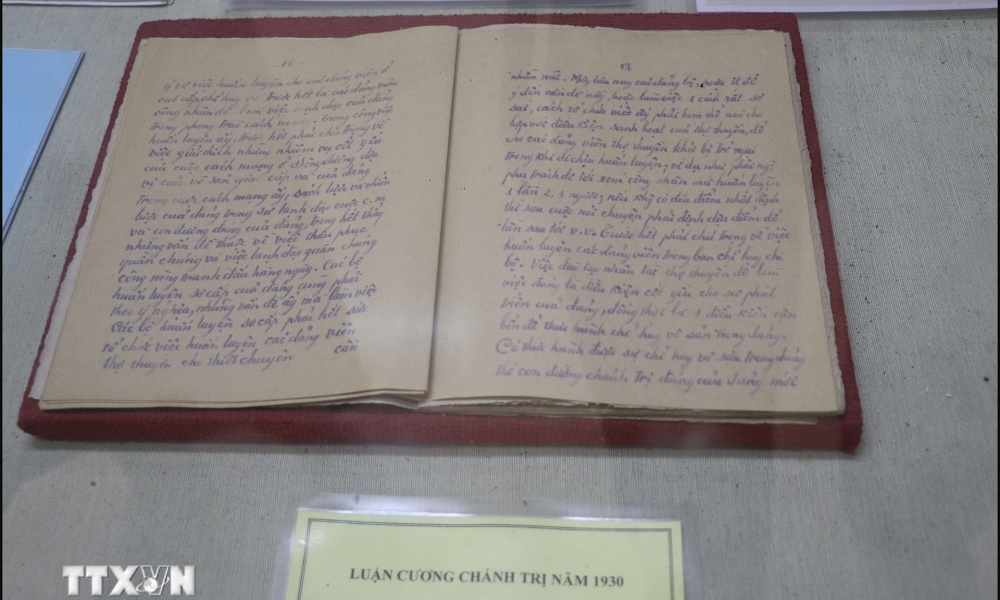 - 16 -
ý tới việc huấn luyện cho các đảng viên ở
các cấp chỉ huy và trước hết là các đảng viên
công nhân để làm việc lãnh đạo của đảng
trong phong trào cách mạng. Trong công việc
huấn luyện ấy, trước hết phải chú trọng về
việc giải thích những nhiệm vụ cốt yếu
của cuộc cách mạng ở Đông dương địa
vị của vô sản giai cấp và của đảng
trong cuộc cách mạng ấy, sách lược và chiến
lược của đảng trong sự lãnh đạo cuộc c.m
và con đường đang của đảng, trong hết thảy
những vấn đề thuộc về việc thâu phục
quần chúng và việc lãnh đạo quần chúng
công nông tranh đấu hàng ngày. Các bộ
huấn luyện sơ cấp của đảng cũng phải
theo ý nghĩa, những vấn đề ấy mà làm việc
Các bộ huấn luyện sơ cấp phải hết sức
tổ chức việc huấn luyện các đảng viên
thợ thuyền cho thiết chuyên cần
nhẫn nại. Mấy lâu nay các đảng bộ, hoặc ít để
ý đến vấn đề này, hoặc làm việc 1 cách rất sơ
sài, cách tổ chức việc ấy phải làm thế nào cho
hợp với điều kiện sanh hoạt của thợ thuyền, để
cho các đảng viên thợ thuyền khỏi bị trở ngại
trong khi đi chịu huấn luyện, ví dụ như phái người
phụ trách để tới xóm công nhân mà huấn luyện
1 lần 2, 3 người; nếu không có địa điểm nhất định
thì sau cuộc nói chuyện phải định địa điểm để
lần sau tới v.v. Trước hết phải chú trọng về việc
huấn luyện các đảng viên trong ban chỉ huy chi
bộ. Việc đào tạo nhân tài thợ thuyền để làm
việc đảng là điều kiện cốt yếu cho sự phát
triển của đảng, đồng thời là 1 điều kiện căn
bản để thực hành chỉ huy vô sản trong đảng.
Có thực hành được sự chỉ huy vô sản trong đảng
thì con đường chánh trị đúng của đảng mới
LUẬN CƯƠNG CHÁNH TRỊ NĂM 1930
TTXVN